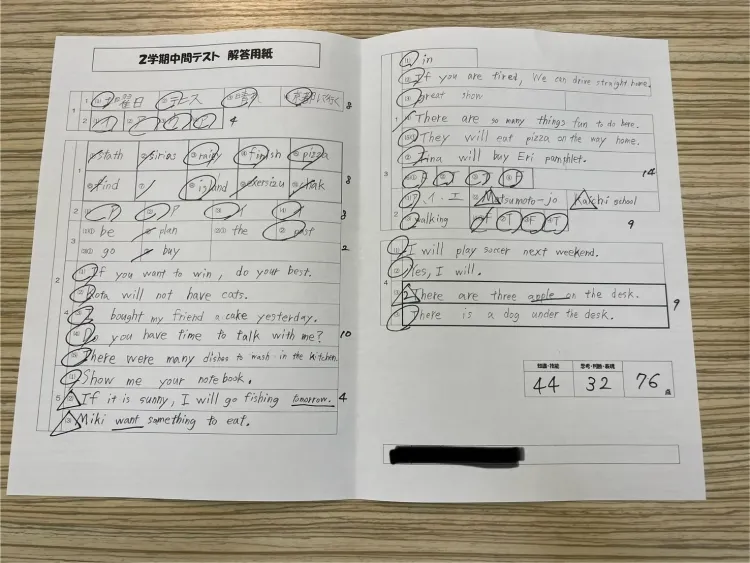 2学期中間テスト 解答用紙
1 1 ① 土曜日 ② テニス ③ 晴れ ④ 京都に行く 8
2 ① イ ② ア ③ ウ ④ ア 4
1 stath sirias rainy finish pizza
find island exersizu chak 8
2 ① ② ア ③ イ ④ イ 8
3 (1)① be ② plan (2)① the ② past
(3)① go ② buy 2
2
4 ① If you want to win, do your best.
② Kota will not have cats.
③ I bought my friend a cake yesterday.
④ Do you have time to talk with me? 10
⑤ There were many dishes to wash in the kitchen.
5 ① Show me your notebook.
② If it is sunny, I will go fishing tomorrow. 4
③ Miki want something to eat.
① in
② If you are tired, We can drive straight home.
③ great show
④ There are so many things fun to do here.
They will eat pizza on the way home.
Tina will buy Eri pamphlet.
3 14
イ・エ Matsumoto-jo Kaichi school
2 walking ② F ③ T ④ F ⑤ T 9
① I will play soccer next weekend.
② Yes, I will.
4 ③ There are three apple on the desk. 9
There is a dog under the desk.
知識・技能 思考・判断・表現
44 32 76 点